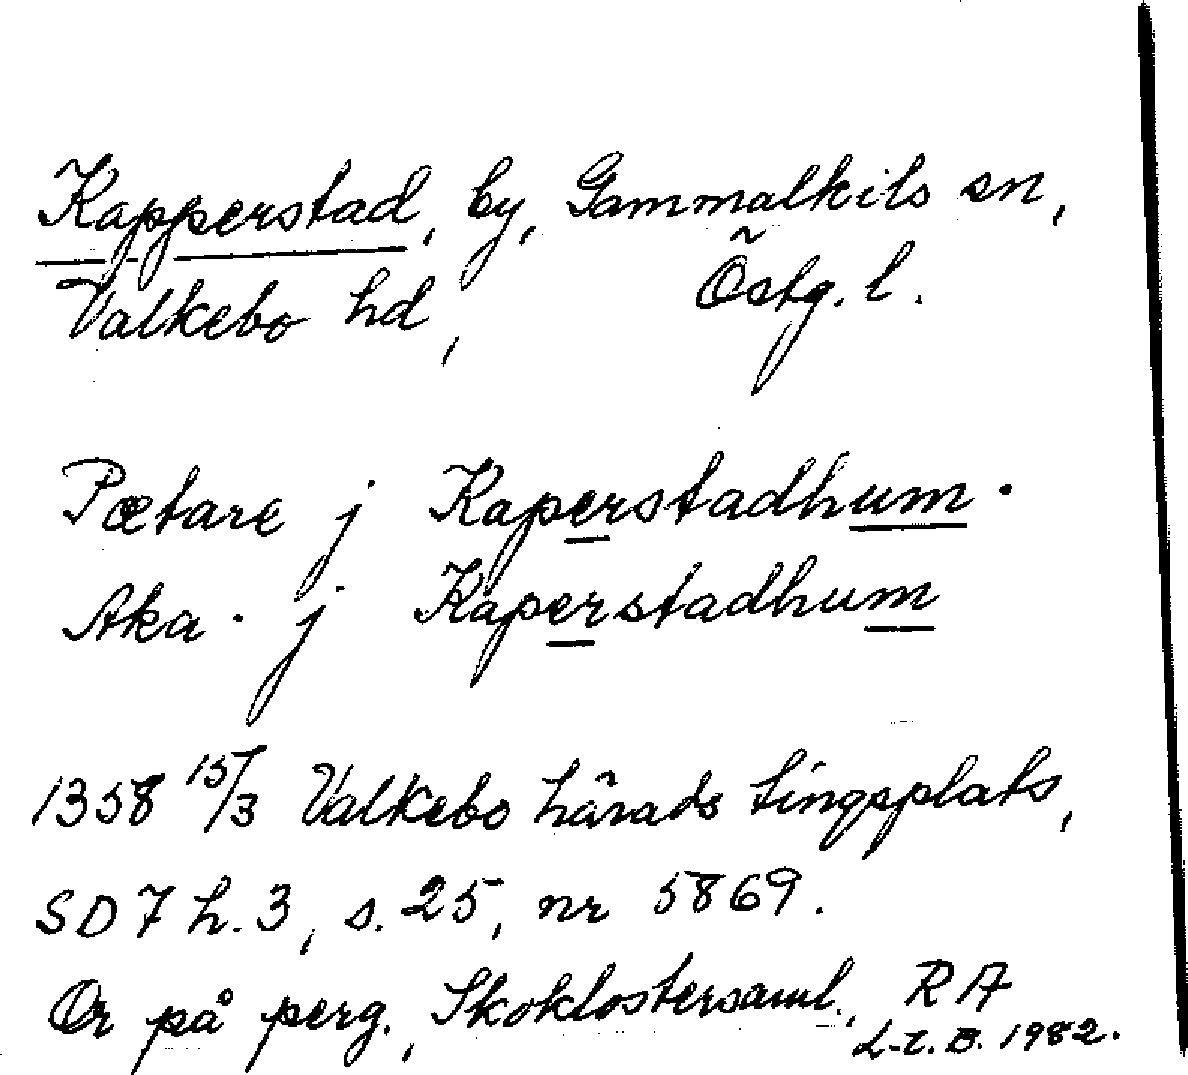 Kapperstad, by, Gammalkils sn,
Valkebo hd, Östg. l.
Pætare j Kaperstadhum ·
Aka · j Kaperstadhum
1358 15/3 Valkebo härads tingsplats,
SD 7 h. 3, s. 25, nr 5869.
Or på perg., Skoklostersaml., RA
L-E. B. 1982.